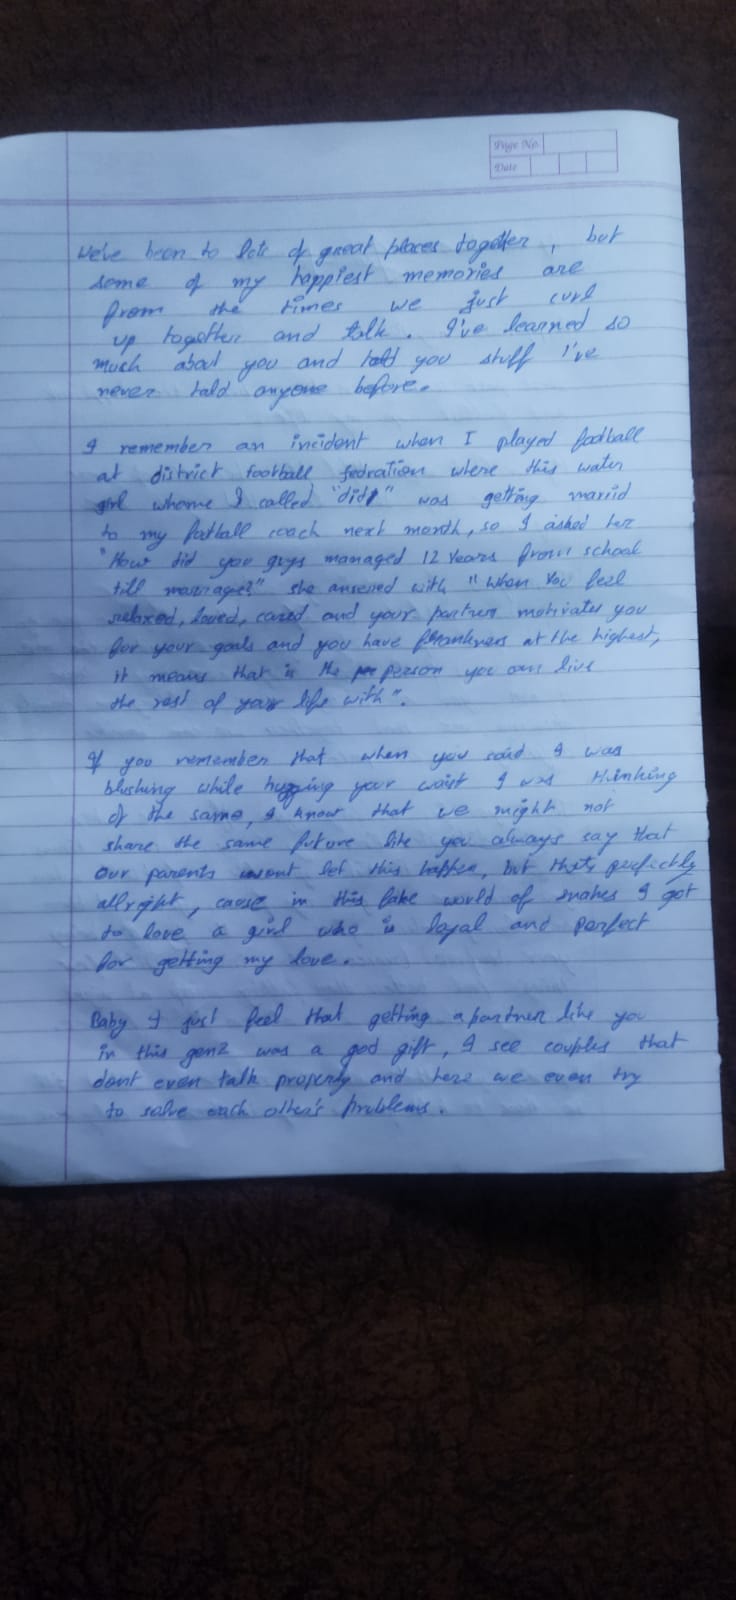 Page No.
Date
We've been to lots of great places together, but
some of my happiest memories are
from the times we just curl
up together and talk. I've learned so
much about you and told you stuff I've
never told anyone before.
I remember an incident when I played football
at district football fedration where this water
girl whome I called "didi" was getting mariid
to my football coach next month, so I asked her
"How did you guys managed 12 Years from school
till marriage?" she ansered with "When You feel
relaxed, loved, cared and your partner motivates you
for your goals and you have frankness at the highest,
it means that is the person you can live
the rest of your life with".
If you remember that when you said I was
blushing while hugging your waist I was thinking
of the same, I know that we might not
share the same future like you always say that
our parents wont let this happen, but thats perfectly
allright, cause in this fake world of snakes I got
to love a girl who is loyal and perfect
for getting my love.
Baby I just feel that getting a partner like you
in this genz was a god gift, I see couples that
dont even talk properly and here we even try
to solve each other's problems.